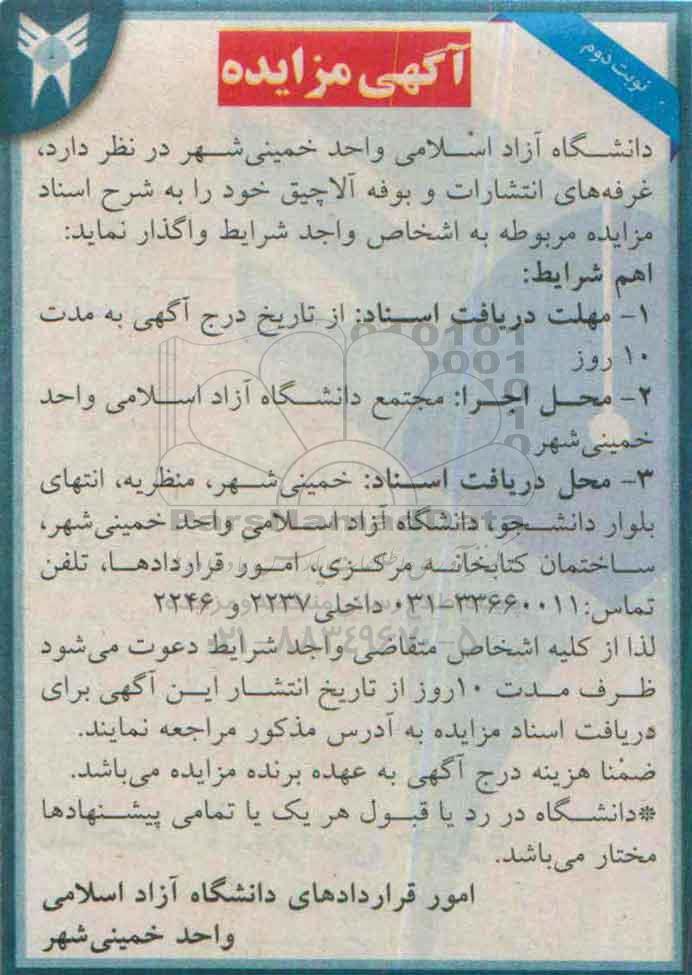 نوبت دوم
آگهی مزایده
دانشگاه آزاد اسلامی واحد خمینی‌شهر در نظر دارد،
غرفه‌های انتشارات و بوفه آلاچیق خود را به شرح اسناد
مزایده مربوطه به اشخاص واجد شرایط واگذار نماید:
اهم شرایط:
۱- مهلت دریافت اسناد: از تاریخ درج آگهی به مدت
۱۰ روز
۲- محل اجرا: مجتمع دانشگاه آزاد اسلامی واحد
خمینی‌شهر
۳- محل دریافت اسناد: خمینی‌شهر، منظریه، انتهای
بلوار دانشجو، دانشگاه آزاد اسلامی واحد خمینی‌شهر،
ساختمان کتابخانه مرکزی، امور قراردادها، تلفن
تماس: ۳۳۶۶۰۰۱۱-۰۳۱ داخلی ۲۲۳۷ و ۲۲۴۶
لذا از کلیه اشخاص متقاضی واجد شرایط دعوت می‌شود
ظرف مدت ۱۰روز از تاریخ انتشار این آگهی برای
دریافت اسناد مزایده به آدرس مذکور مراجعه نمایند.
ضمنا هزینه درج آگهی به عهده برنده مزایده می‌باشد.
*دانشگاه در رد یا قبول هر یک یا تمامی پیشنهادها
مختار می‌باشد.
امور قراردادهای دانشگاه آزاد اسلامی
واحد خمینی‌شهر